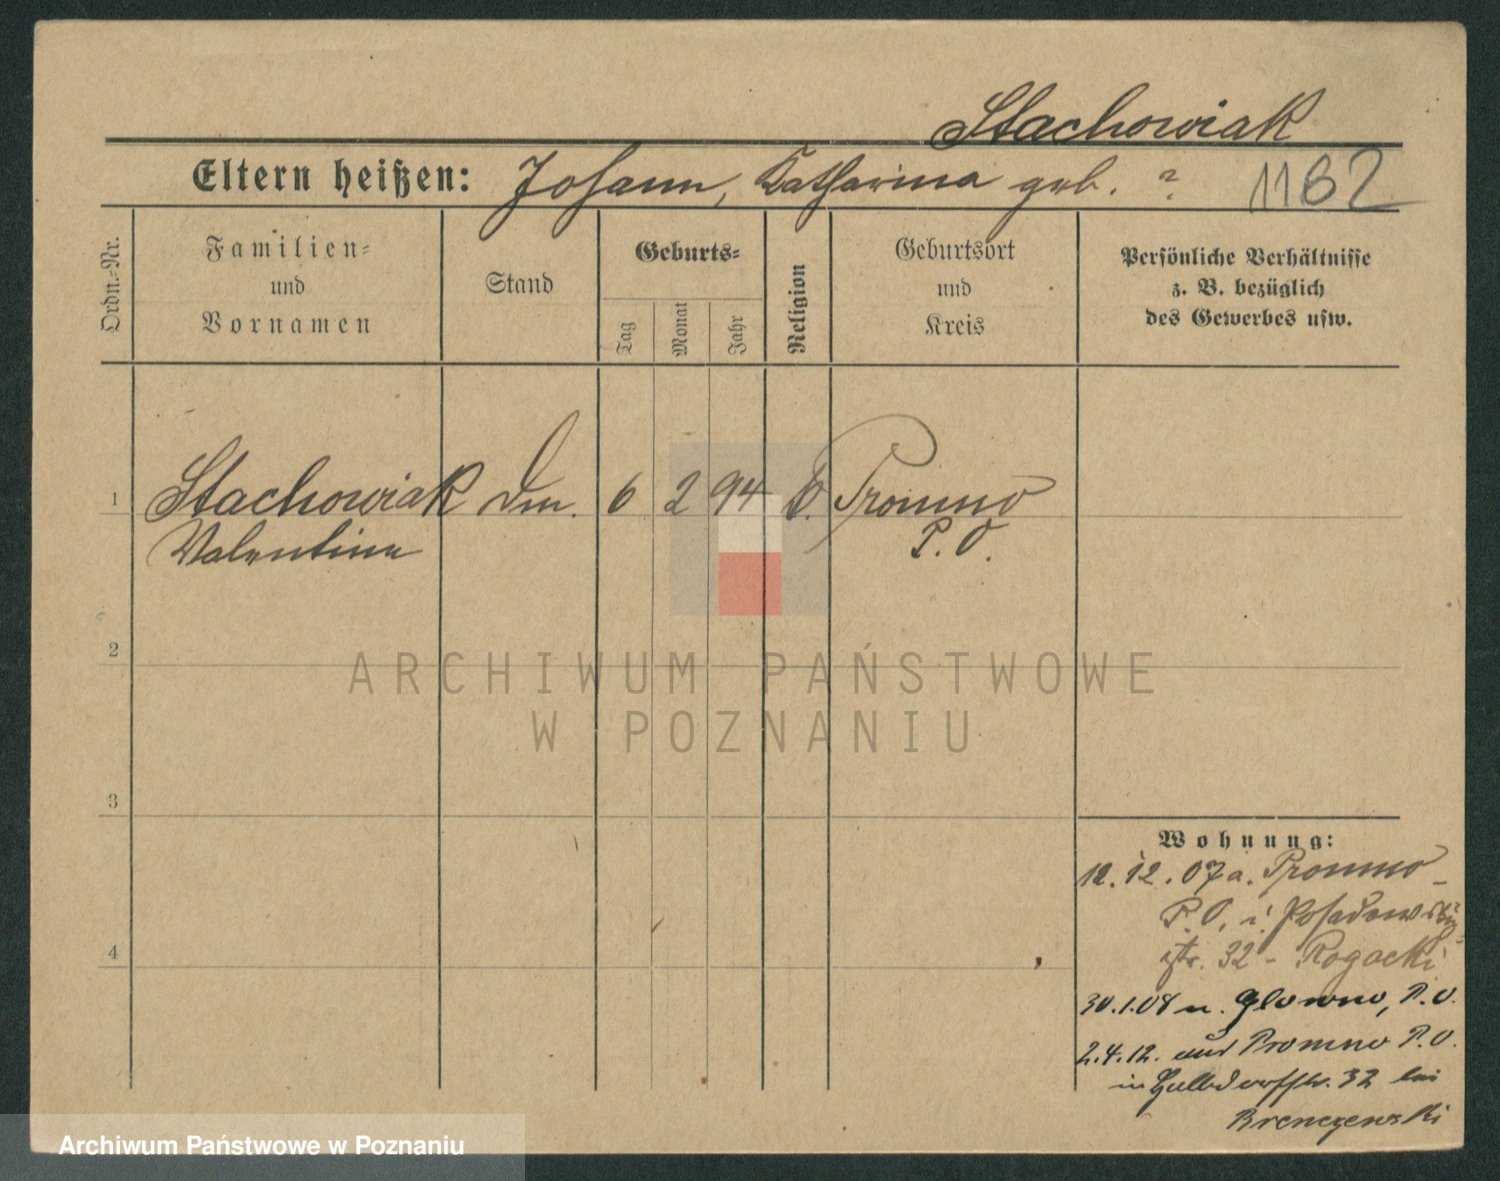 Stachowiak
Eltern heißen: Johann, Katharina geb. ? 1162
Ordn.-Nr.
Familien-
und
Vornamen
Stand
Geburts-
Tag
Monat
Jahr
Religion
Geburtsort
und
Kreis
Persönliche Verhältnisse
z. B. bezüglich
des Gewerbes usw.
1 Stachowiak 6 2 94 Promno
Valentine P. O.
2
3
4
Wohnung:
12.12.07 a. Promno
P. O. i. Posadowsky
str. 32 - Rogacki
30.1.08 n. Glowno, P. O.
2.4.12. aus Promno P. O.
in 32 bei
Brenczewski
ARCHIWUM PAŃSTWOWE
W POZNANIU
Archiwum Państwowe w Poznaniu